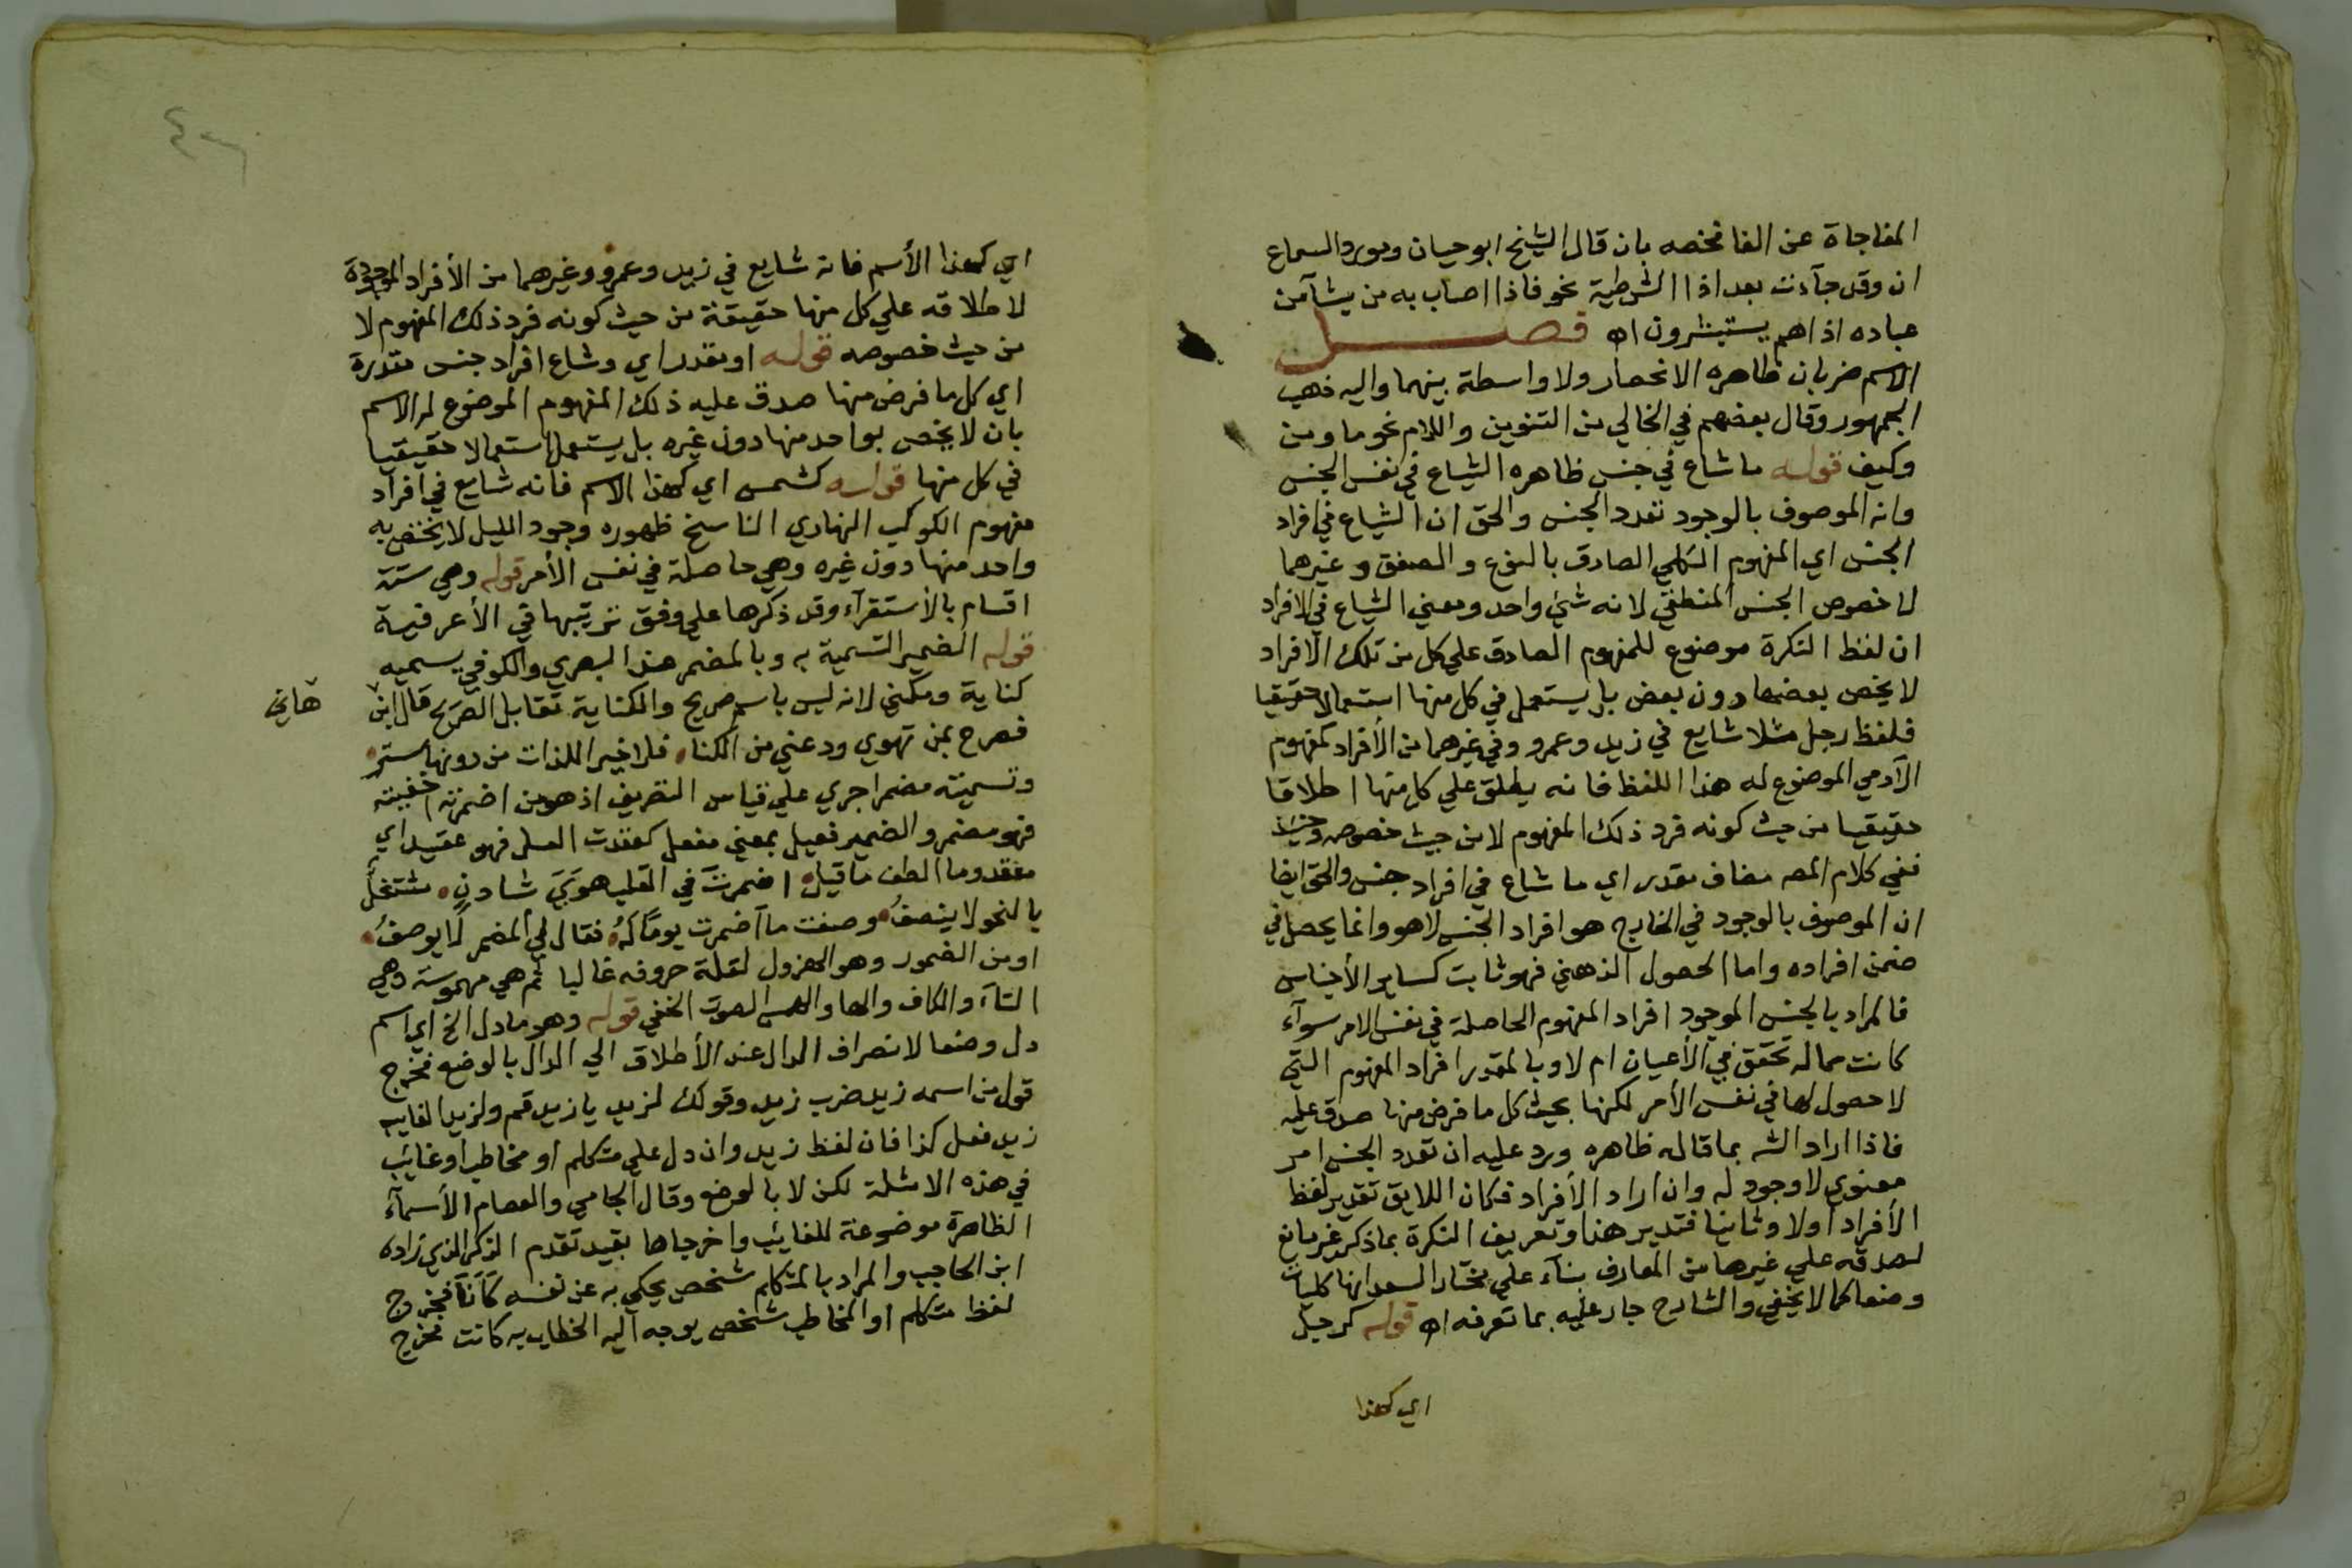 المفاجاة عن الفا نخصه بان قال الشيخ ابو حيان ومورد السماع
ان وقد جآءت بعد اذا الشرطية نحو فاذا اصاب به من يشآ من
عباده اذا هم يستبشرون اه فصل
الاسم ضربان ظاهره الانحصار ولا واسطة بينهما واليه ذهب
الجمهور وقال بعضهم في الخالي من التنوين واللام نحو ما ومن
وكيف قوله ما شاع في جنس ظاهره الشياع في نفس الجنس
وانه الموصوف بالوجود تعدد الجنس والحق ان الشياع في افراد
الجنس اي المفهوم الكلي الصادق بالنوع والصنف وغيرهما
لا خصوص الجنس المنطقي لانه شئ واحد ومعني الشياع في الافراد
ان لفظ النكرة موضوع للمفهوم الصادق علي كل من تلك الافراد
لا يخص بعضها دون بعض بل يستعمل في كل منها استعمالا حقيقيا
فلفظ رجل مثلا شايع في زيد وعمرو وفي غيرهما من الأفراد كمفهوم
الآدمي الموضوع له هذا اللفظ فانه يطلق علي كل منها اطلاقا
حقيقيا من حيث كونه فرد ذلك المفهوم لا من حيث خصوصه وحينئذ
ففي كلام المص مضاف مقدر اي ما شاع في افراد جنس والحق ايضا
ان الموصوف بالوجود في الخارج هو افراد الجنس لا هو وانما يحصل في
ضمن افراده واما الحصول الذهني فهو ثابت كساير الأجناس
فالمراد بالجنس الموجود افراد المفهوم الحاصلة في نفس الامر سوآء
كانت مما له تحقق في الأعيان ام لا وبالمقدر افراد المفهوم التي
لا حصول لها في نفس الأمر لكنها بحيث كل ما فرض منها صدق عليه
فاذا اراد الش بما قاله ظاهره ورد عليه ان تعدد الجنس امر
معنوي لا وجود له وان اراد الأفراد فكان اللايق تقدير لفظ
الأفراد اولا وثانيا فتدبر هذا وتعريف النكرة بما ذكر غير مانع
لصدقه علي غيرها من المعارف بنآء علي مختار السعد انها كليات
وضعا كما لا يخفي والشارح جار عليه بما تعرفه اه قوله كرجل
اي كهذا
اي كهذا الأسم فانه شايع في زيد وعمرو وغيرهما من الأفراد الموجودة
لاطلاقه علي كل منها حقيقة من حيث كونه فرد ذلك المفهوم لا
من حيث خصوصه قوله او مقدر اي وشاع افراد جنس مقدرة
اي كل ما فرض منها صدق عليه ذلك المفهوم الموضوع له الاسم
بان لا يخص بواحد منها دون غيره بل يستعمل استعمالا حقيقيا
في كل منها قوله كشمس اي كهذا الاسم فانه شايع في افراد
مفهوم الكوكب النهاري الناسخ ظهوره وجود الليل لا يختص به
واحد منها دون غيره وهي حاصلة في نفس الأمر قوله وهي ستة
اقسام بالأستقرآء وقد ذكرها علي وفق ترتيبها في الأعرفية
قوله الضمير التسمية به وبالمضمر عند البصري والكوفي يسميه
كناية ومكني لانه ليس باسم صريح والكناية تقابل الصريح قال ابن
هاني
فصرح بمن تهوي ودعني من الكنا فلا خير اللذات من دونها ستر
وتسميته مضمرا جري علي قياس التصريف اذ هو من اضمرته اخفيته
فهو مضمر والضمير فعيل بمعني مفعل كعقدت العسل فهو عقيد اي
معقد وما الطف ما قيل اضمرت في القلب هوي شادن مشتغل
بالنحو لا ينصف وصفت ما اضمرت يوما له فقال لي المضمر لا يوصف
او من الضمور وهو الهزول لقلة حروفه غالبا ثم هي مهموسة وهي
التآء والكاف والها والهمس الصوت الخفي قوله وهو ما دل الخ اي اسم
دل وضعا لانصراف الدال عند الأطلاق الي الدال بالوضع فخرج
قول من اسمه زيد ضرب زيد وقولك لزيد يا زيد قم ولزيد الغايب
زيد فعل كذا فان لفظ زيد وان دل علي متكلم او مخاطب او غائب
في هذه الامثلة لكن لا بالوضع وقال الجامي والعصام الأسمآء
الظاهرة موضوعة للغائب واخرجاها بقيد تقدم الذكر الذي زاده
ابن الحاجب والمراد بالمتكلم شخص يحكي به عن نفسه كأنا فخرج
لفظ متكلم او المخاطب شخص يوجه اليه الخطاب به كانت فخرج